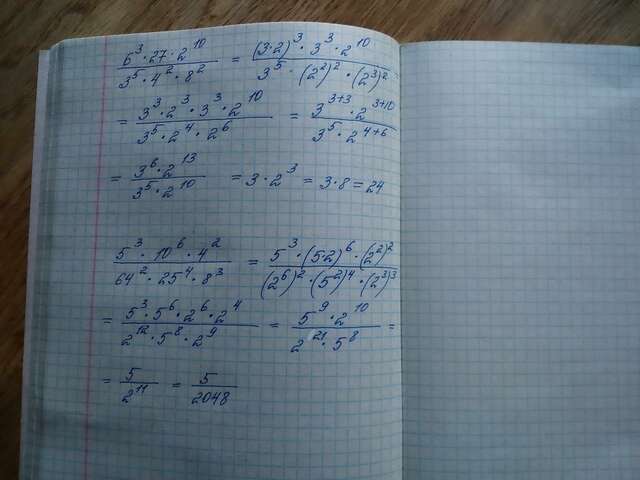 6³·27·2¹⁰ / 3⁵·4²·8² = (3·2)³·3³·2¹⁰ / 3⁵·(2²)²·(2³)²
= 3³·2³·3³·2¹⁰ / 3⁵·2⁴·2⁶ = 3³⁺³·2³⁺¹⁰ / 3⁵·2⁴⁺⁶
= 3⁶·2¹³ / 3⁵·2¹⁰ = 3·2³ = 3·8 = 24
5³·10⁶·4² / 64²·25⁴·8³ = 5³·(5·2)⁶·(2²)² / (2⁶)²·(5²)⁴·(2³)³
= 5³·5⁶·2⁶·2⁴ / 2¹²·5⁸·2⁹ = 5⁹·2¹⁰ / 2²¹·5⁸ =
= 5 / 2¹¹ = 5 / 2048